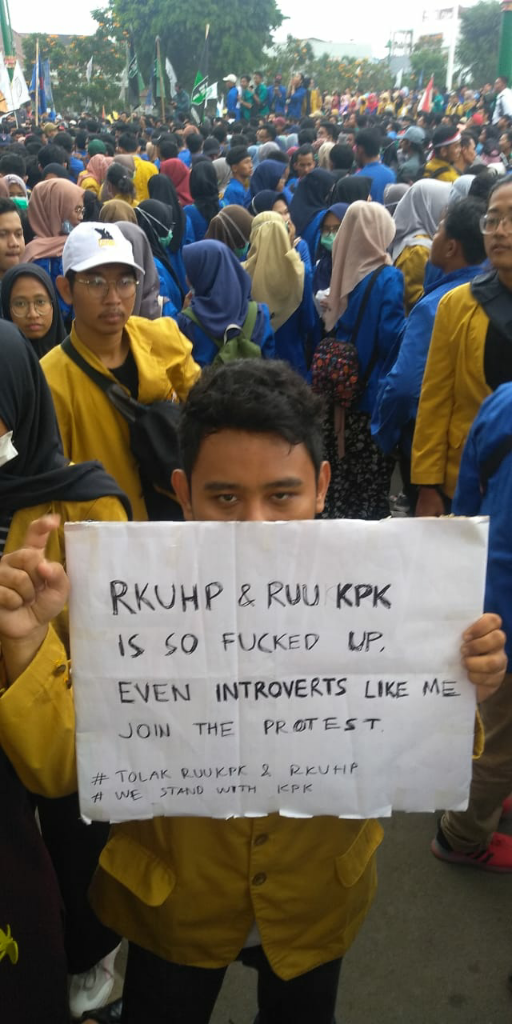 RKUHP & RUU KPK
IS SO FUCKED UP.
EVEN INTROVERTS LIKE ME
JOIN THE PROTEST.
# TOLAK RUUKPK & RKUHP
# WE STAND WITH KPK